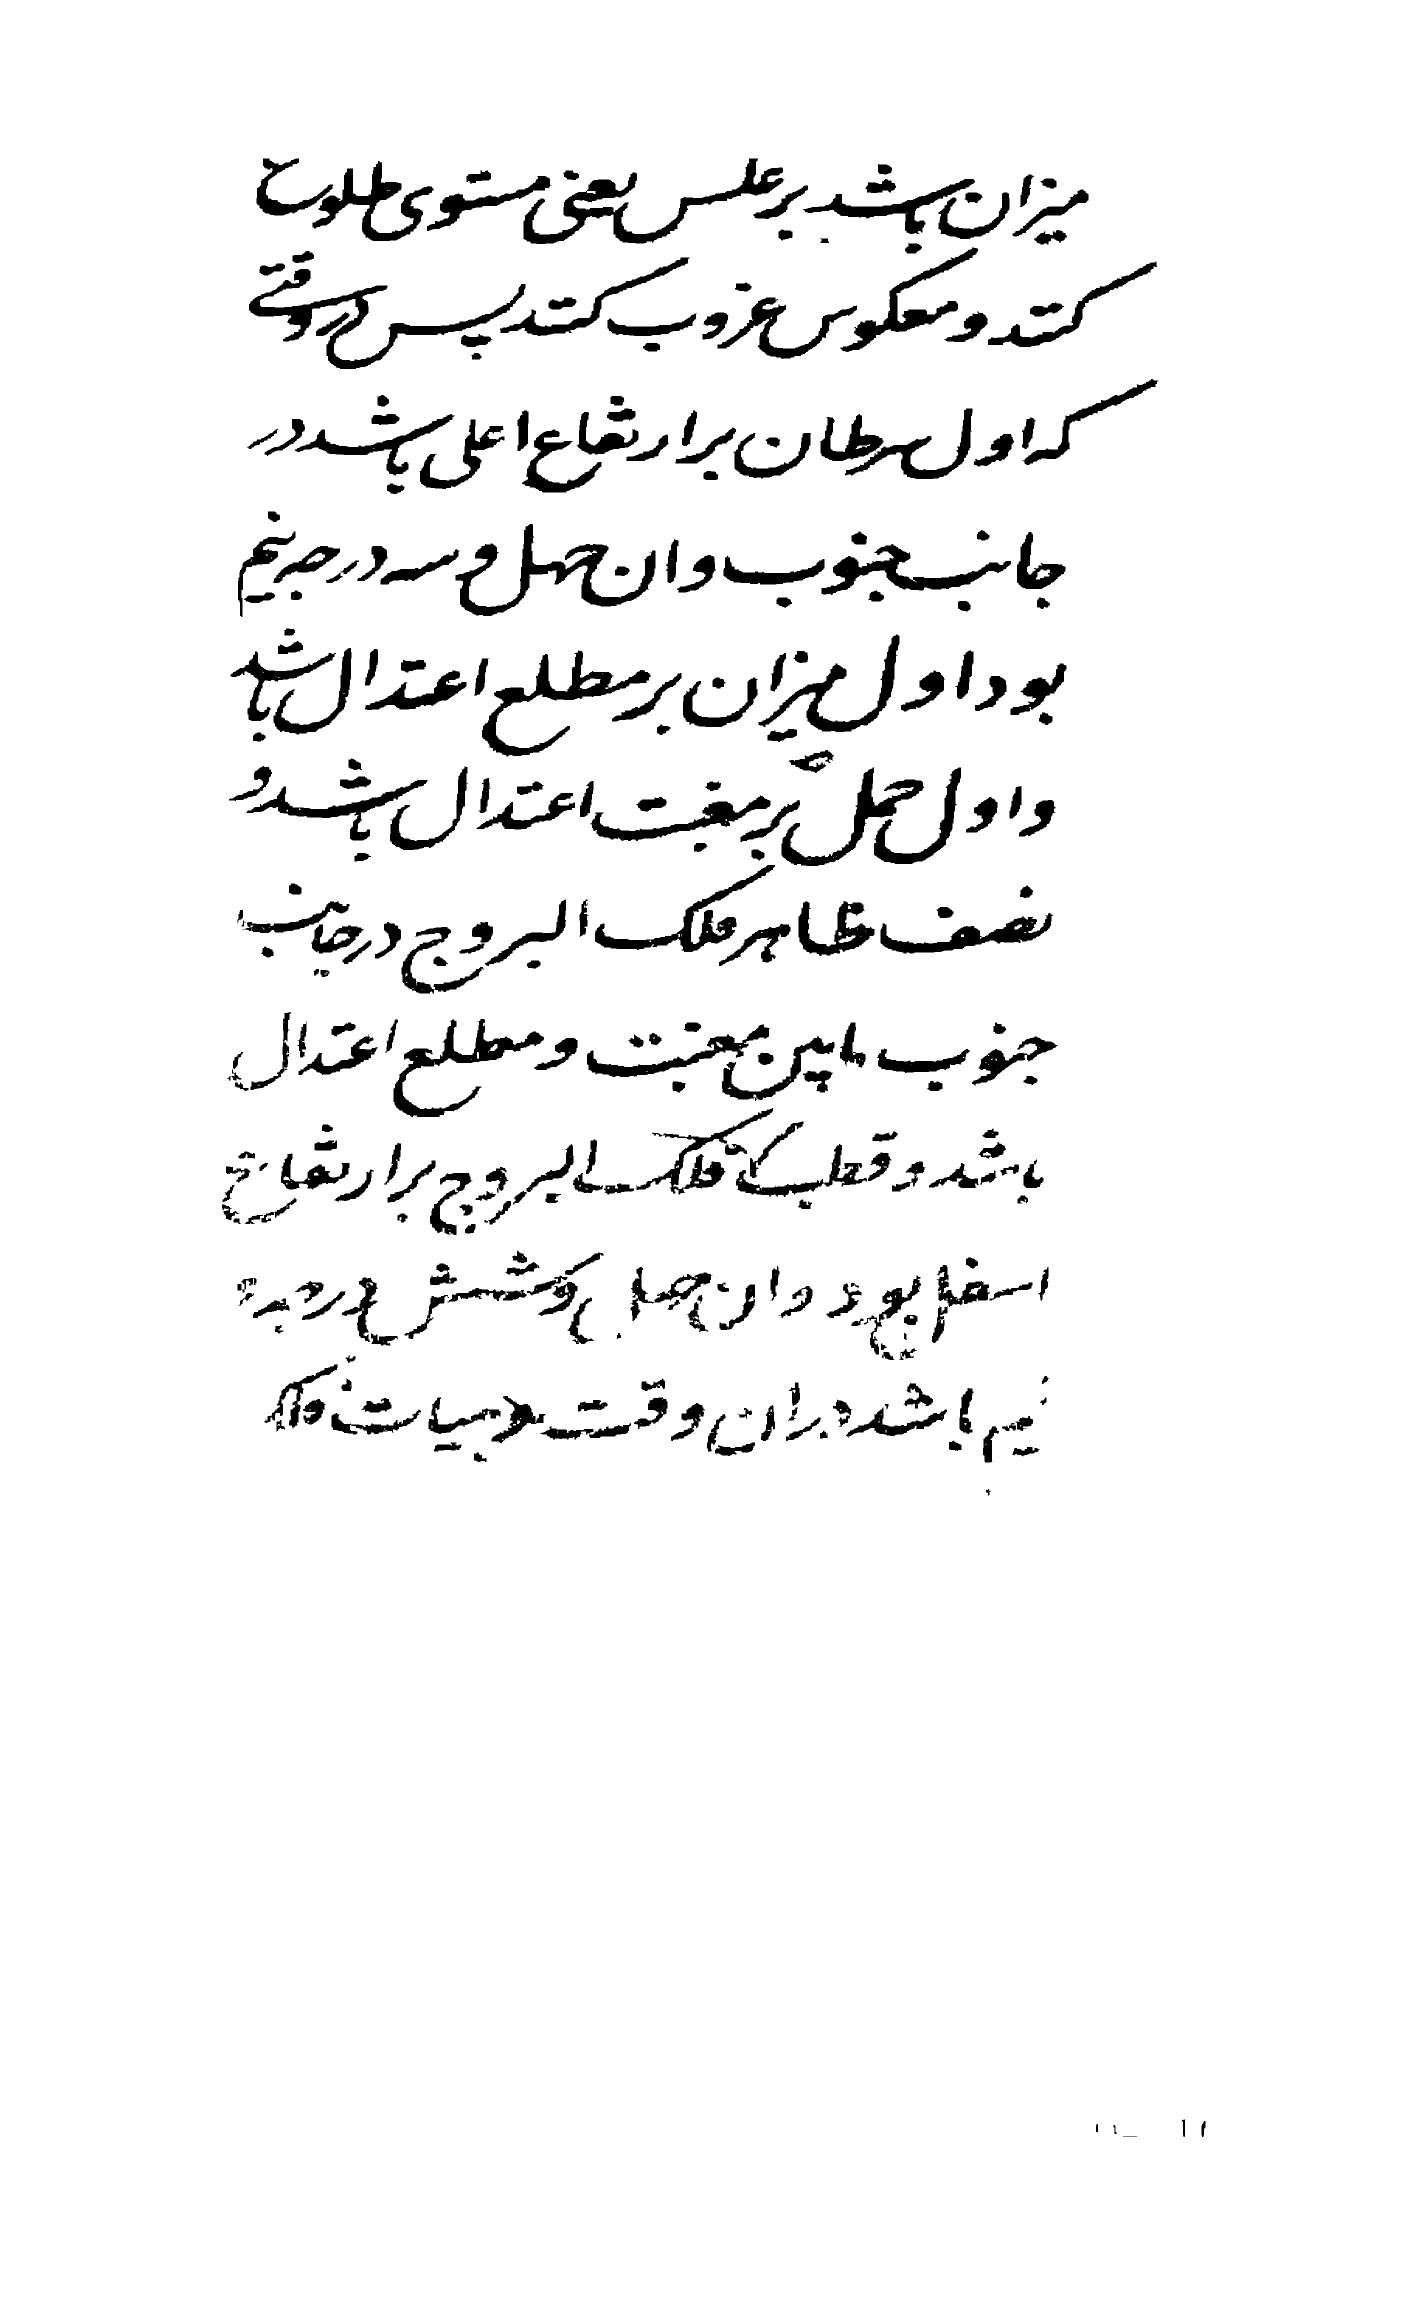 میزان باشد بر عکس یعنی مستوی طلوع
کند و معکوس غروب کند پس در وقتی
که اول سرطان بر ارتفاع اعلی باشد در
جانب جنوب و ان چهل و سه درجه نیم
بود اول میزان بر مطلع اعتدال باشد
و اول حمل بر مغیب اعتدال باشد و
نصف ظاهر فلک البروج در جانب
جنوب مابین مغیب و مطلع اعتدال
باشد و قطب فلک البروج بر ارتفاع
اسفل بود و ان چهل و شش درجه و
نیم باشد دران وقت فلک